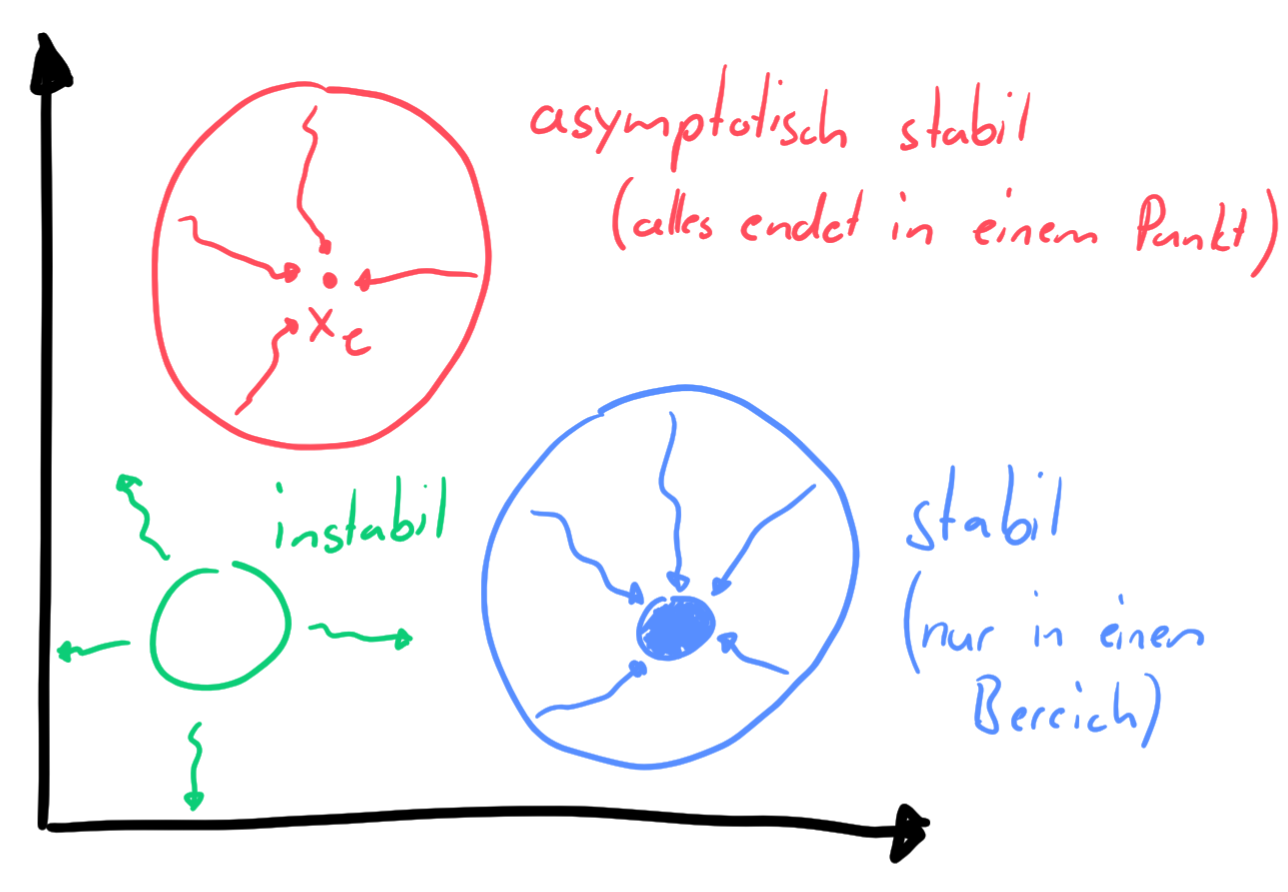 asymptotisch stabil
(alles endet in einem Punkt)
xe
instabil
stabil
(nur in einen
Bereich)